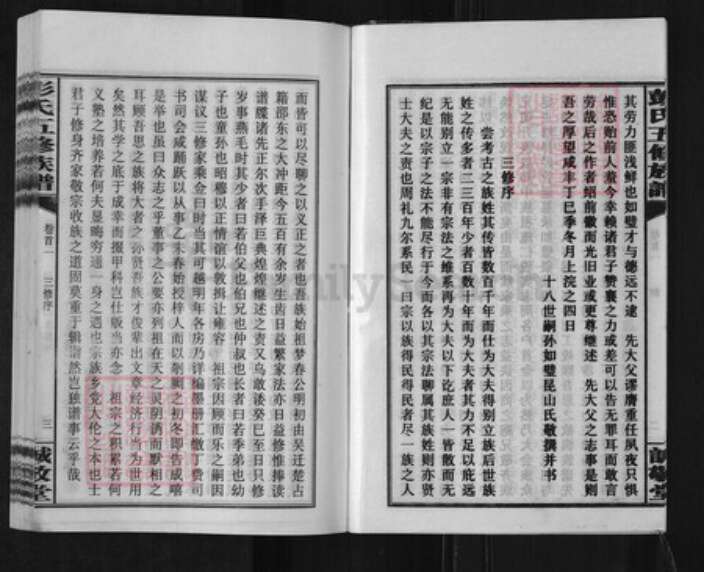 彭氏五修族谱
誠敬堂
其劳力匪浅鲜也如璧才与德远不逮 先大父谬膺重任夙夜只惧
惟恐贻前人羞今幸赖诸君子赞襄之力或差可以告无罪耳而敢言
劳哉后之作者绍前徽而光旧业或更尊继述 先大父之志事是则
吾之厚望咸丰丁巳季冬月上浣之四日
十八世嗣孙如璧昆山氏敬撰并书
三修序
尝考古之族姓其传皆数百千年而仕为大夫得别立族后世族
姓之传多者二三百年少者百数十年而为大夫者其力不足以庇远
无能别立一宗非有宗法之维系再为大夫以下讫庶人一皆散而无
纪是以宗子之法不能尽行于今而各以其宗法聊属其族姓则亦贤
士大夫之责也周礼九尔系民一曰宗以族得民得民者尽一族之人
而皆可以尽聊之以义正之者也吾族始祖梦春公明初由吴迁楚占
籍邵东之大冲距今五百有余岁生齿日益繁家法亦日益修惟捧读
谱牒诸先正尔次手泽巨典煌煌继述之责又乌敢诿癸巳至日只修
岁事燕毛时其少者曰若伯父也伯兄也仲叔也长者曰若季弟也幼
子也童孙也昭穆以正情谊以敦揖让雍容 祖宗因顾而乐之嗣因
谋议三修家乘佥曰时当其可越明年各房乃详编墨册汇缴丁费司
书司会咸踊跃以从事乙未春始授梓人而以剞劂之初冬即告成嘻
是举也虽曰众志之乎董事之公要亦列祖在天之灵阴诱而默相之
耳顾吾思之族将大者之孙贤吾族才俊辈出文章经济行当为世用
矣然其学之底于成幸而掇甲科岂仕版当亦念 祖宗之积累若何
义塾之培养若何夫显晦穷通一身之遇也宗族乡党大伦之本也士
君子修身齐家敬宗收族之道固莫重于辑谱然岂独谱事云乎哉
彭氏五修族谱
卷首一
三修序
三
誠敬堂
familysearch